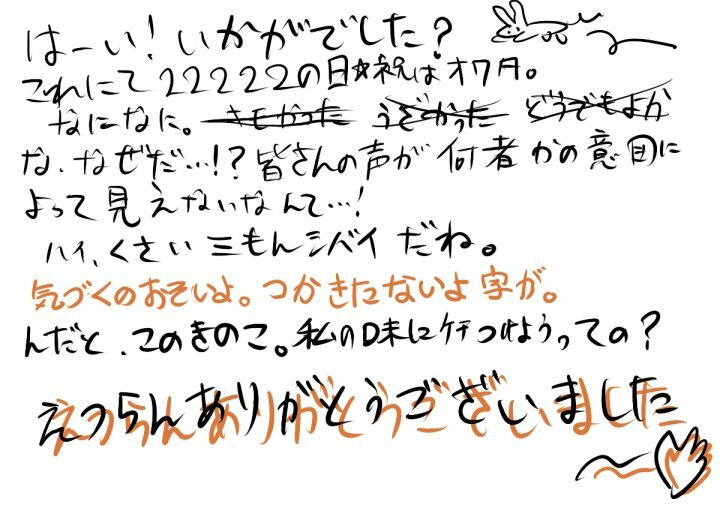 はーい!いかがでした?
これにて22222の日☆祝はオワタ。
なになに。きもかった うざかった どうでもよか
な、なぜだ…!?皆さんの声が何者かの意図に
よって見えないなんて…!
ハイ、くさい三もんシバイだね。
気づくのおそいよ。つかきたないよ字が。
んだと、このきのこ。私の味にケチつけようっての?
えつらんありがとうございました